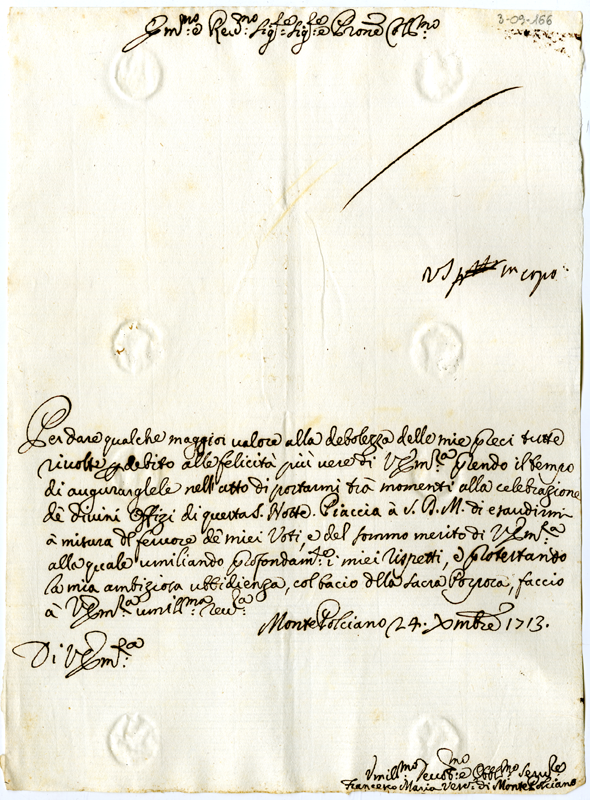 3-09-166
Em.mo e Rev.mo Sig.re Sig.re e Prone Coll.mo
in capo
Per dare qualche maggior valore alla debolezza delle mie preci tutte
rivolte p debito alle felicità più vere di V. Em.za prendo il tempo
di augurarglele nell'atto di portarmi trà momenti alla celebrazione
dè divini Offizi di questa S. Notte. Piaccia à S. D. M. di esaudirmi
à misura del fervore de miei Voti, e del sommo merito di V. Em.za
alla quale umiliando profondam.te i miei rispetti, e protestando
la mia ambiziosa ubbidienza, col bacio della Sacra Porpora, faccio
à V. Em.za umill.ma rev.za
Monte Polciano 24. Xmbre 1713.
Di V. Em.za
Umill.mo Devot.mo e Obbl.mo Serv.re
Francesco Maria Vesc. di Monte Polciano